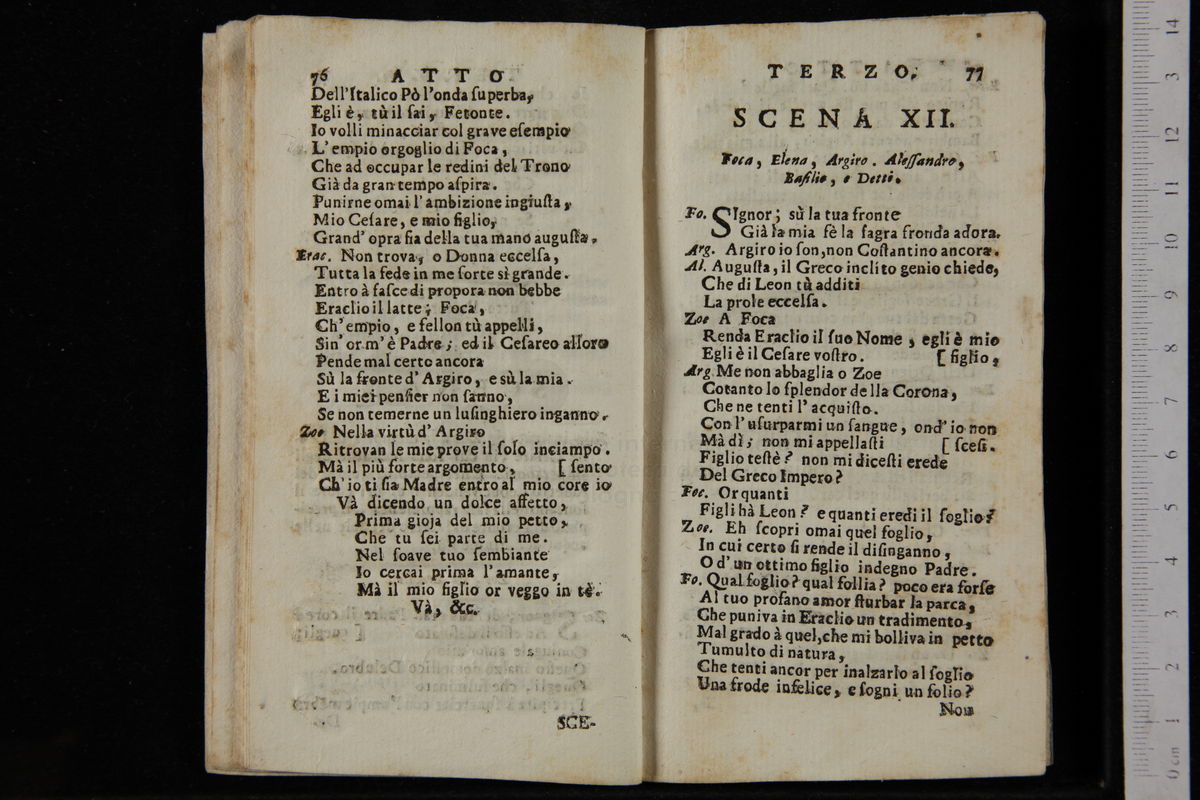 76 ATTO
Dell'Italico Pò l'onda ſuperba,
Egli è, tù il ſai, Fetonte.
Io volli minacciar col grave eſempio
L' empio orgoglio di Foca,
Che ad occupar le redini del Trono
Già da gran tempo aſpira.
Punirne omai l'ambizione ingiuſta,
Mio Ceſare, e mio figlio,
Grand' opra fia della tua mano auguſta.
Erac. Non trova, o Donna eccelſa,
Tutta la fede in me ſorte sì grande.
Entro à faſce di propora non bebbe
Eraclio il latte; Foca,
Ch' empio, e fellon tù appelli,
Sin' or m' è Padre; ed il Ceſareo alloro
Pende mal certo ancora
Sù la fronte d' Argiro, e sù la mia.
E i miei penſier non ſanno,
Se non temerne un luſinghiero inganno.
Zoe Nella virtù d' Argiro
Ritrovan le mie prove il ſolo inciampo.
Mà il più forte argomento, [ ſento
Ch' io ti ſia Madre entro al mio core io
Và dicendo un dolce affetto,
Prima gioja del mio petto,
Che tu ſei parte di me.
Nel ſoave tuo ſembiante
Io cercai prima l'amante,
Mà il mio figlio or veggo in tè.
Và, &c.
SCE-
TERZO. 77
SCENA XII.
Foca, Elena, Argiro. Aleſſandro,
Baſilio, e Detti.
Fo. SIgnor; sù la tua fronte
Già la mia fè la ſagra fronda adora.
Arg. Argiro io ſon, non Coſtantino ancora.
Al. Auguſta, il Greco inclito genio chiede,
Che di Leon tù additi
La prole eccelſa.
Zoe A Foca
Renda Eraclio il ſuo Nome, egli è mio
Egli è il Ceſare voſtro. [ figlio,
Arg Me non abbaglia o Zoe
Cotanto lo ſplendor della Corona,
Che ne tenti l' acquiſto.
Con l' uſurparmi un ſangue, ond' io non
Mà dì; non mi appellaſti [ ſceſi.
Figlio teſtè? non mi diceſti erede
Del Greco Impero?
Foc. Or quanti
Figli hà Leon? e quanti eredi il ſoglio?
Zoe. Eh ſcopri omai quel foglio,
In cui certo ſi rende il diſinganno,
O d' un ottimo figlio indegno Padre.
Fo. Qual foglio? qual follia? poco era forſe
Al tuo profano amor ſturbar la parca,
Che puniva in Eraclio un tradimento,
Mal grado à quel, che mi bolliva in petto
Tumulto di natura,
Che tenti ancor per inalzarlo al ſoglio
Una frode infelice, e ſogni un folio?
Non